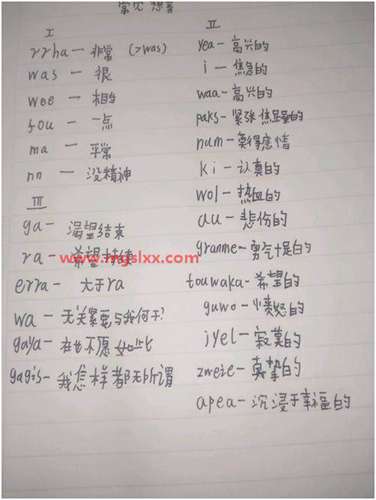 常见想音
I
rrha — 非常 (>was)
was — 很
wee — 相当
fou — 一点
ma — 平常
nn — 没精神
III
ga — 渴望结束
ra — 希望持续
erra — 大于ra
wa — 无关紧要与我何干?
gaya — 在也不愿如此
gagis — 我怎样都无所谓
II
yea — 高兴的
i — 焦急的
waa — 高兴的
paks — 紧张 焦虑的
num — 莫得感情
ki — 认真的
wol — 热血的
au — 悲伤的
granme — 勇气十足的
touwaka — 希望的
guwo — 愤怒的
jyel — 寂寞的
zweie — 真挚的
apea — 沉浸于幸福的
www.mgslxx.com